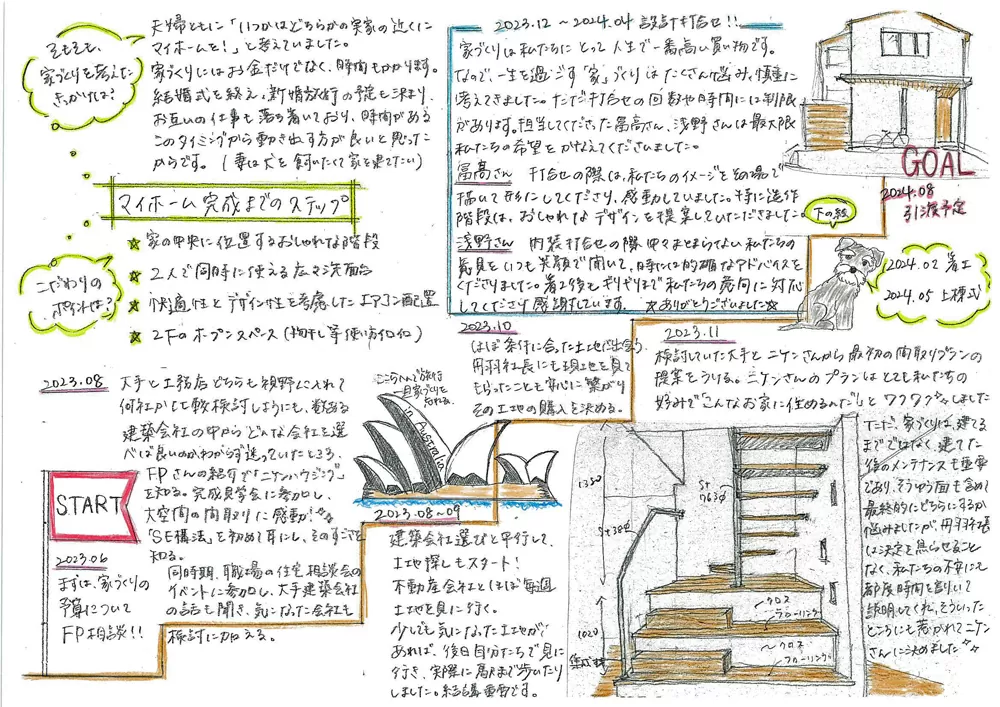 そもそも、
家づくりを考えた
きっかけは?
夫婦ともに「いつかはどちらかの実家の近くに
マイホームを!」と考えていました。
家づくりにはお金だけでなく、時間もかかります。
結婚式を終え、新婚旅行の予定も決まり、
お互いの仕事も落ち着いており、時間がある
このタイミングから動き出す方が良いと思った
からです。(妻は犬を飼いたくて家を建てたい)
マイホーム完成までのステップ
こだわりの
ポイントは?
★ 家の中央に位置するおしゃれな階段
★ 2人で同時に使える広々洗面台
★ 快適性とデザイン性を考慮したエアコン配置
★ 2Fのオープンスペース(物干し等使い方イロイロ)
START
2023.06
まずは、家づくりの
予算について
FP相談!!
2023.08
大手と工務店どちらも視野に入れて
何社か比較検討しようにも、数ある
建築会社の中からどんな会社を選
べば良いのかわからず迷っていたところ
FPさんの紹介で「ニケンハウジング」
を知る。完成見学会に参加し、
大空間の間取りに感動!
「SE構法」を初めて耳にし、そのすごさを
知る。
同時期、職場の住宅相談会の
イベントに参加し、大手建築会社
の話も聞き、気になった会社も
検討に加える。
in Australia
2023.08~09
建築会社選びと平行して、
土地探しもスタート!
不動産会社とほぼ毎週
土地を見に行く。
少しでも気になった土地が
あれば、後日自分たちで見に
行き、実際に駅まで歩いたり
しました。結構重要です。
2023.10
ほぼ条件に合った土地に出会う。
丹羽社長にも現地を見て
もらったことも安心に繋がり
その土地の購入を決める。
2023.11
検討していた大手とニケンさんから最初の間取りプランの
提案をうける。ニケンさんのプランはとても私たちの
好みで「こんなお家に住めるんだ」とワクワクしました
ただ、家づくりは、建てる
までではなく、建てた
後のメンテナンスも重要
であり、そうゆう面も含めて
最終的にどちらにするか
悩みましたが、丹羽社長
は決定を焦らせること
なく、私たちの不安にも
都度時間を割いて
説明してくれ、そういった
ところにも惹かれてニケン
さんに決めました
1350
St
St
1020
クロス
フローリング
クロス
フローリング
2023.12 ~2024.04 設計打合せ!!
家づくりは私たちにとって人生で一番高い買い物です。
なので、一生を過ごす「家」づくりはたくさん悩み、慎重に
考えてきました。ただ打合せの回数や時間には制限
があります。担当してくださった冨高さん、浅野さんは最大限
私たちの希望をかなえてくださいました。
冨高さん 打合せの際は、私たちのイメージをその場で
描いて形にしてくださり、感動していました。特に造作
階段は、おしゃれなデザインを提案していただきました。
下の絵
浅野さん 内装打合せの際、中々まとまらない私たちの
意見をいつも笑顔で聞いて、時には的確なアドバイスを
くださりました。着工後もギリギリまで私たちの意向に対応
してくださり感謝しています。 ★ありがとうございました★
2024.02 着工
2024.05 上棟式
GOAL
2024.08
引渡予定